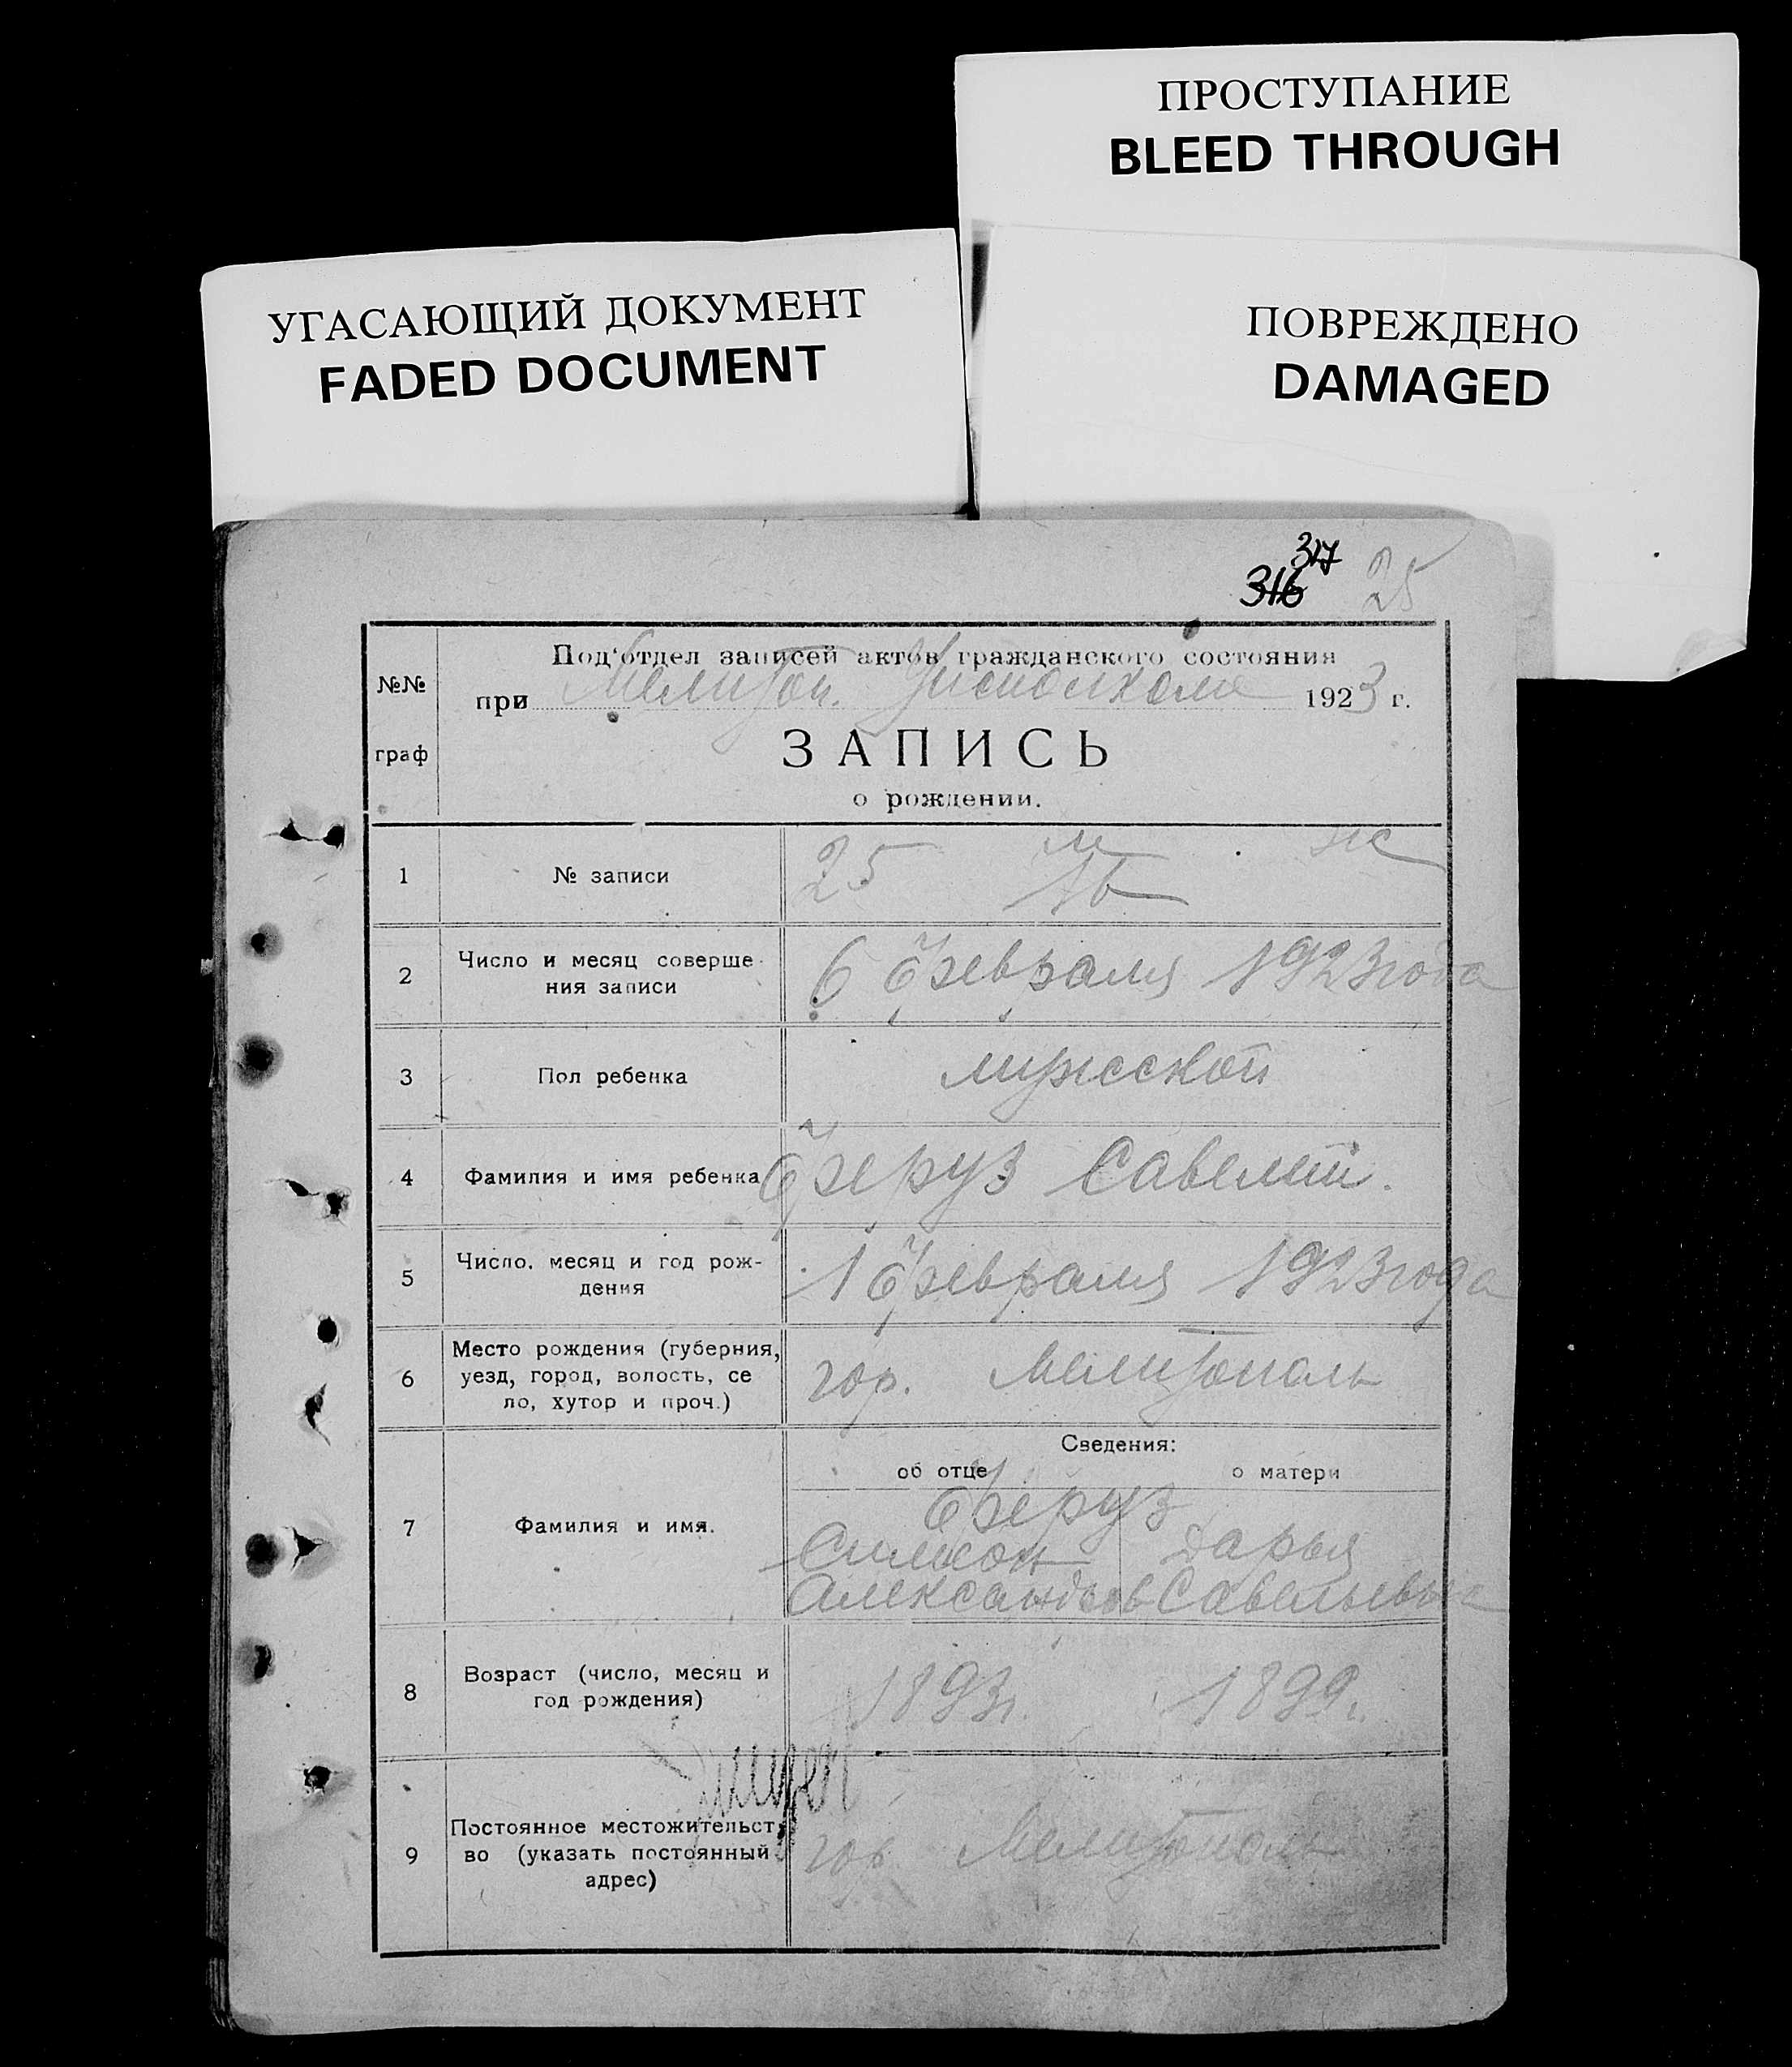 ПРОСТУПАНИЕ
BLEED THROUGH
УГАСАЮЩИЙ ДОКУМЕНТ
FADED DOCUMENT
ПОВРЕЖДЕНО
DAMAGED
317
316 25
Под'отдел записей актов гражданского состояния
№№
при Мелитоп. 1923 г.
граф
ЗАПИСЬ
о рождении.
1 № записи 25 м ж
2 Число и месяц соверше-
ния записи 6 февраля 1923 года
3 Пол ребенка мужской
4 Фамилия и имя ребенка Феруз Савелий.
5 Число, месяц и год рож-
дения 1 февраля 1923 года
6 Место рождения (губерния,
уезд, город, волость, се
ло, хутор и проч.) гор. Мелитополь
Сведения:
об отце о матери
7 Фамилия и имя. Феруз
Симхон Дарья
Александров Савельевна
8 Возраст (число, месяц и
год рождения) 1893г. 1899г.
9 Постоянное местожительст
во (указать постоянный
адрес) гор Мелитополь